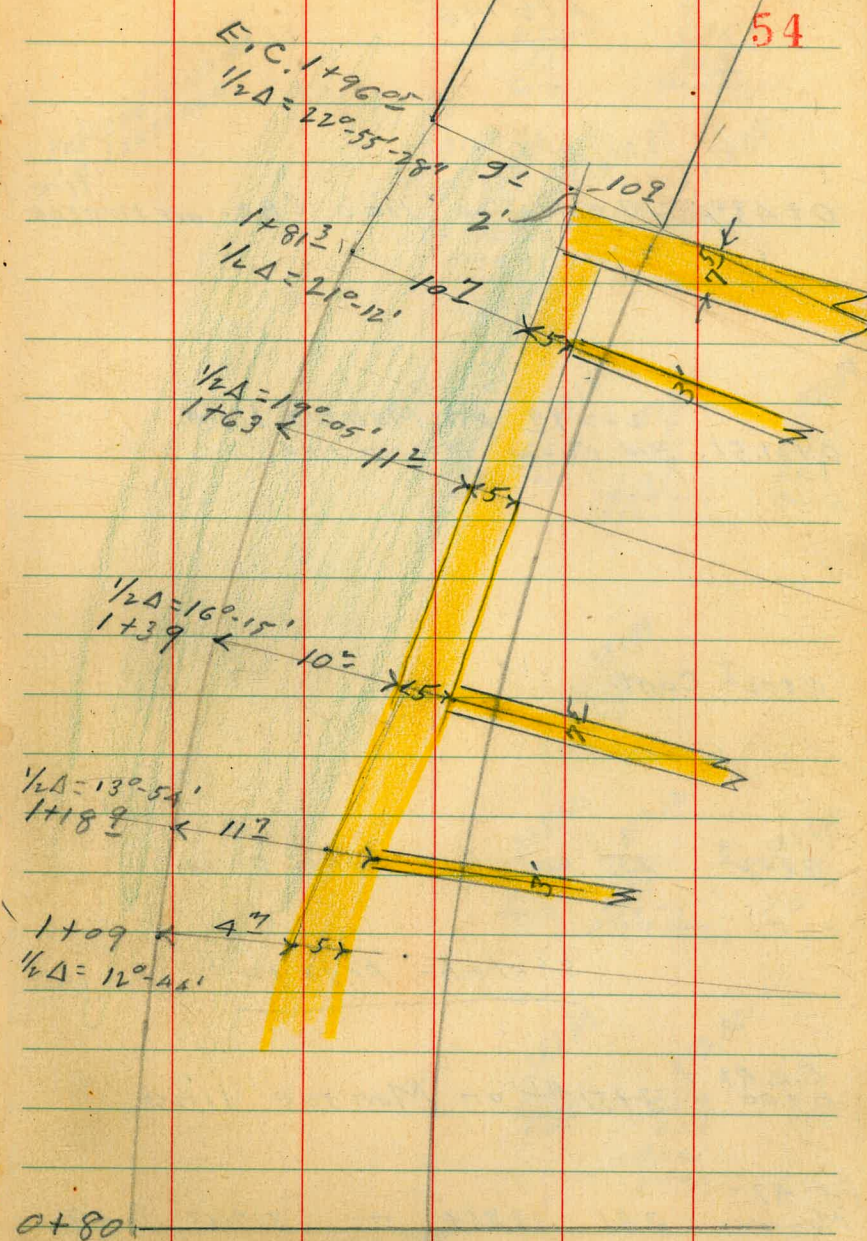 54
E.C. 1+96 05
1/2 Δ = 22°-55'-28"
9 1
10 9
2'
1+81 3
1/2 Δ = 21°-12'
10 7
5
7 5
3'
1/2 Δ = 19°-05'
1+63
11 2
5
1/2 Δ = 16°-15'
1+39
10 2
5
1/2 Δ = 13°-54'
1+18 9
11 7
3'
1+09
4 7
5
1/2 Δ = 12°-44'
0+80